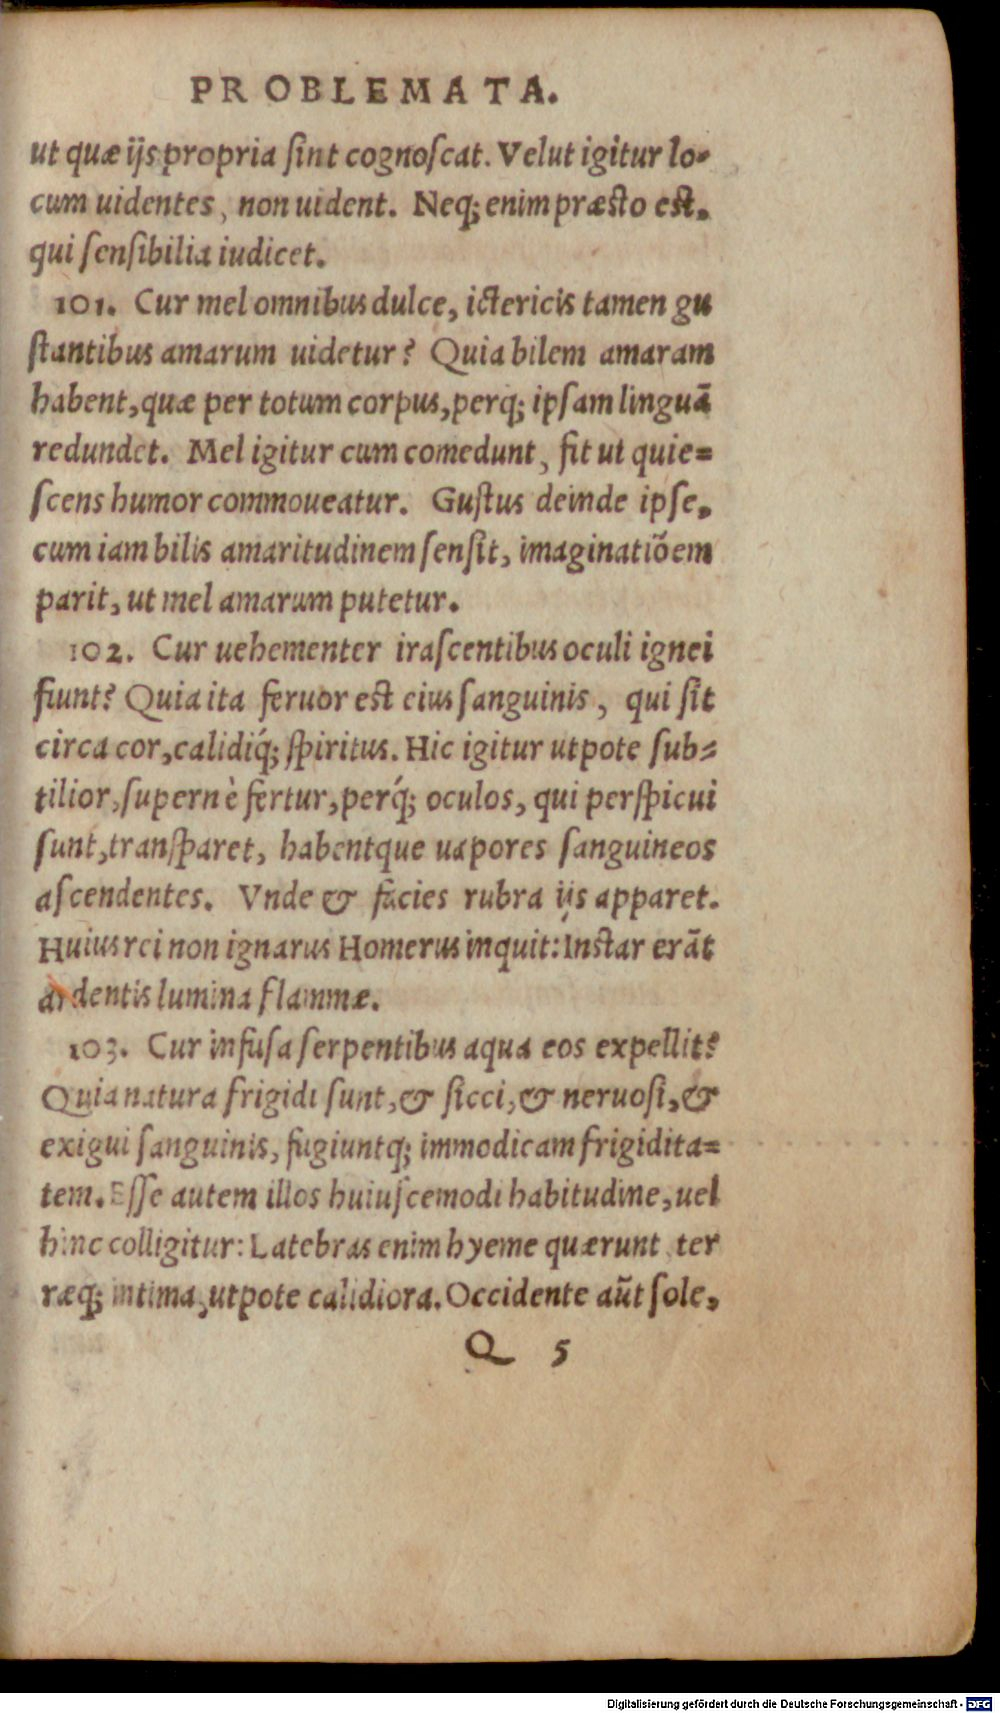 PROBLEMATA.
ut quæ ijs propria ſint cognoſcat. Velut igitur lo-
cum uidentes, non uident. Neq; enim præsto est,
qui ſenſibilia iudicet.
101. Cur mel omnibus dulce, ictericis tamen gu
ſtantibus amarum uidetur? Quia bilem amaram
habent, quæ per totum corpus, perq; ipſam linguā
redundet. Mel igitur cum comedunt, fit ut quie=
ſcens humor commoueatur. Guſtus deinde ipſe,
cum iam bilis amaritudinem ſenſit, imaginatiōem
parit, ut mel amarum putetur.
102. Cur uehementer iraſcentibus oculi ignei
fiunt? Quia ita feruor est eius ſanguinis, qui ſit
circa cor, calidiq́; ſpiritus. Hic igitur utpote ſub=
tilior, ſupernè fertur, perq́; oculos, qui perſpicui
ſunt, tranſparet, habentque uapores ſanguineos
aſcendentes. Vnde & facies rubra ijs apparet.
Huius rei non ignarus Homerus inquit: Instar erāt
ardentis lumina flammæ.
103. Cur infuſa ſerpentibus aqua eos expellit?
Quia natura frigidi ſunt, & ſicci, & neruoſi, &
exigui ſanguinis, fugiuntq; immodicam frigidita=
tem. Eſſe autem illos huiuſcemodi habitudine, uel
hinc colligitur: Latebras enim hyeme quærunt ter
ræq; intima, utpote calidiora. Occidente aūt ſole,
Q 5
Digitalisierung gefördert durch die Deutsche Forschungsgemeinschaft - DFG